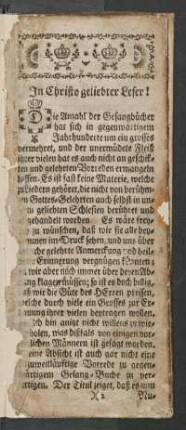 In Christo geliebter Leser!
Die Anzahl der Gesangbücher
hat sich in gegenwärtigem
Jahrhunderte um ein grosses
vermehret, und der unermüdete Fleiß
ihrer vielen hat es auch nicht an geschik-
ten und gelehrten Vorreden ermangeln
lassen. Es ist fast keine Materie, welche
zu Liedern gehöret, die nicht von berühm-
ten Gottes-Gelehrten auch selbst in un-
geliebten Schlesien berühret und
gehandelt worden. Es wäre
zu wünschen, daß wir sie alle bey-
immen im Druck sehen, und uns über
gelehrte Anmerckung und heil.
Ermunterung vergnügen könten:
wir aber noch immer über deren Ab-
klagen müssen; so ist es doch billig,
daß wir die Güte des HErren preisen,
welche durch viele ein Grosses zur Er-
ihrer vielen beytragen wollen.
Ich bin anitzt nicht willens zu wie-
holen, was dißfals von einigen vor-
lichen Männern ist gesagt worden,
meine Absicht ist auch gar nicht eine
weitläuftige Vorrede zu gegen-
wärtigem Gesang-Buche zu ver-
fertigen. Der Titul zeiget, daß es nun
X 2 Nu-